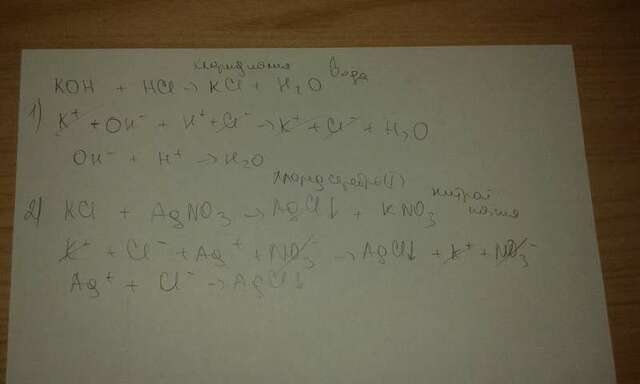 хлорид калия вода
KOH + HCl → KCl + H₂O
1) K⁺ + OH⁻ + H⁺ + Cl⁻ → K⁺ + Cl⁻ + H₂O
OH⁻ + H⁺ → H₂O
хлорид серебра (I) нитрат калия
2) KCl + AgNO₃ → AgCl↓ + KNO₃
K⁺ + Cl⁻ + Ag⁺ + NO₃⁻ → AgCl↓ + K⁺ + NO₃⁻
Ag⁺ + Cl⁻ → AgCl↓